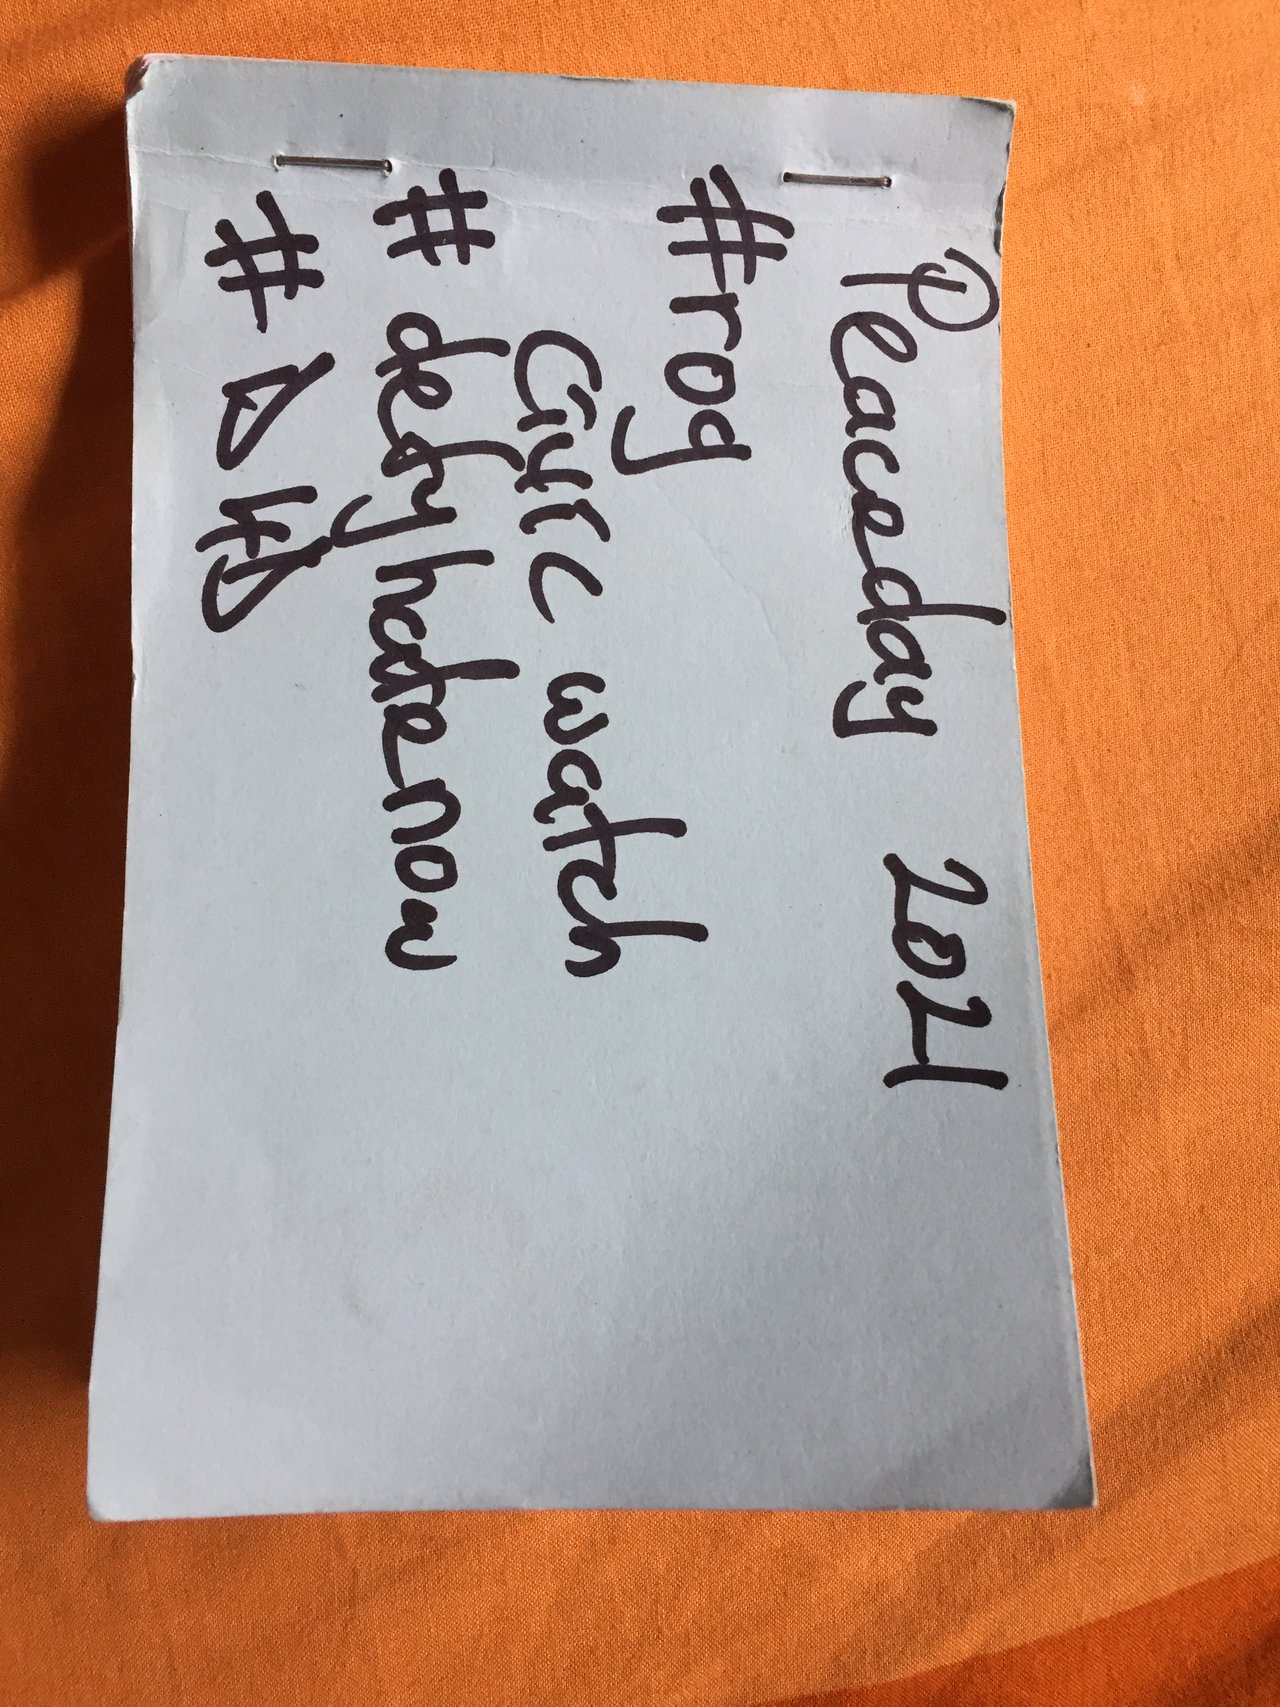 Peaceday 2021
#rog
Civic watch
#defyhatenow
#